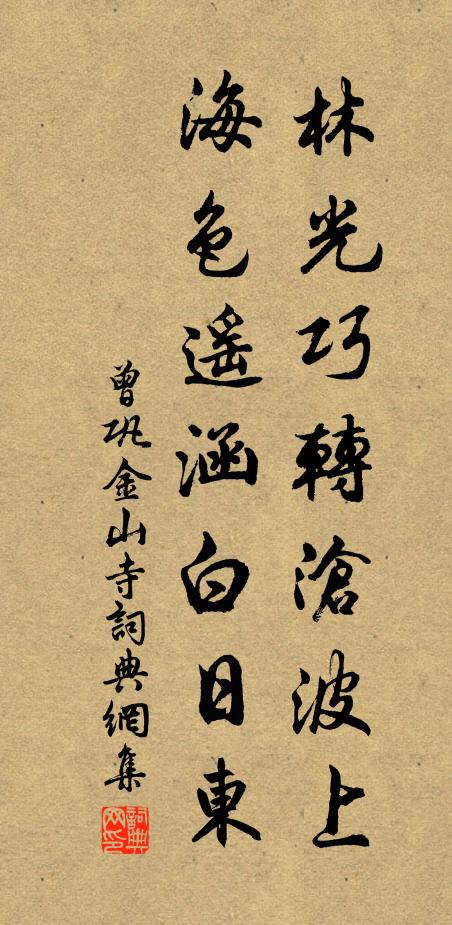 林光巧轉滄波上
海色遥涵白日東
曾巩金山寺詞典網集
詞典网印